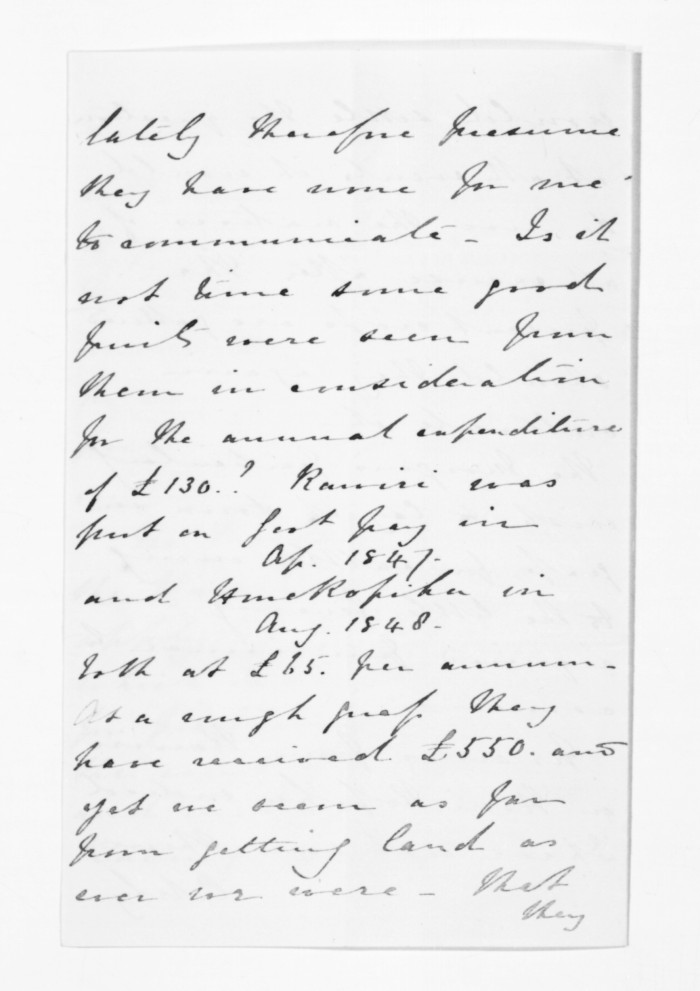 lately therefore presume
they have none for me
to communicate - Is it
not time some good
fruits were seen from
them in consideration
for the annual expenditure
of £130.? Rawiri was
put on Govt pay in
Ap. 1847.
and in
Aug. 1848-
both at £65. per annum-
At a rough guess they
have received £550. and
yet we seem as far
from getting land as
ever we were - that
they